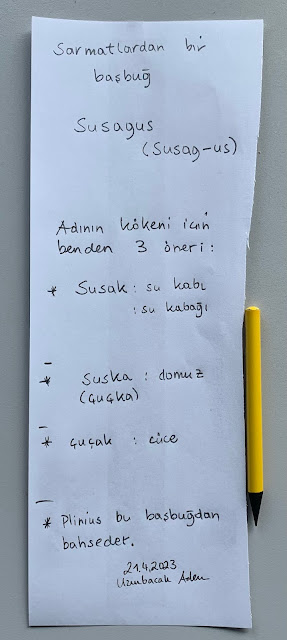 Sarmatlardan bir
başbuğ
Susagus
(Susag-us)
Adının kökeni icin
benden 3 öneri:
* Susak : su kabı
: su kabağı
* Suska : domuz
(çuçka)
* çuçak : cüce
* Plinius bu başbuğdan
bahseder.
21.4.2023
Uzunbacak Adem